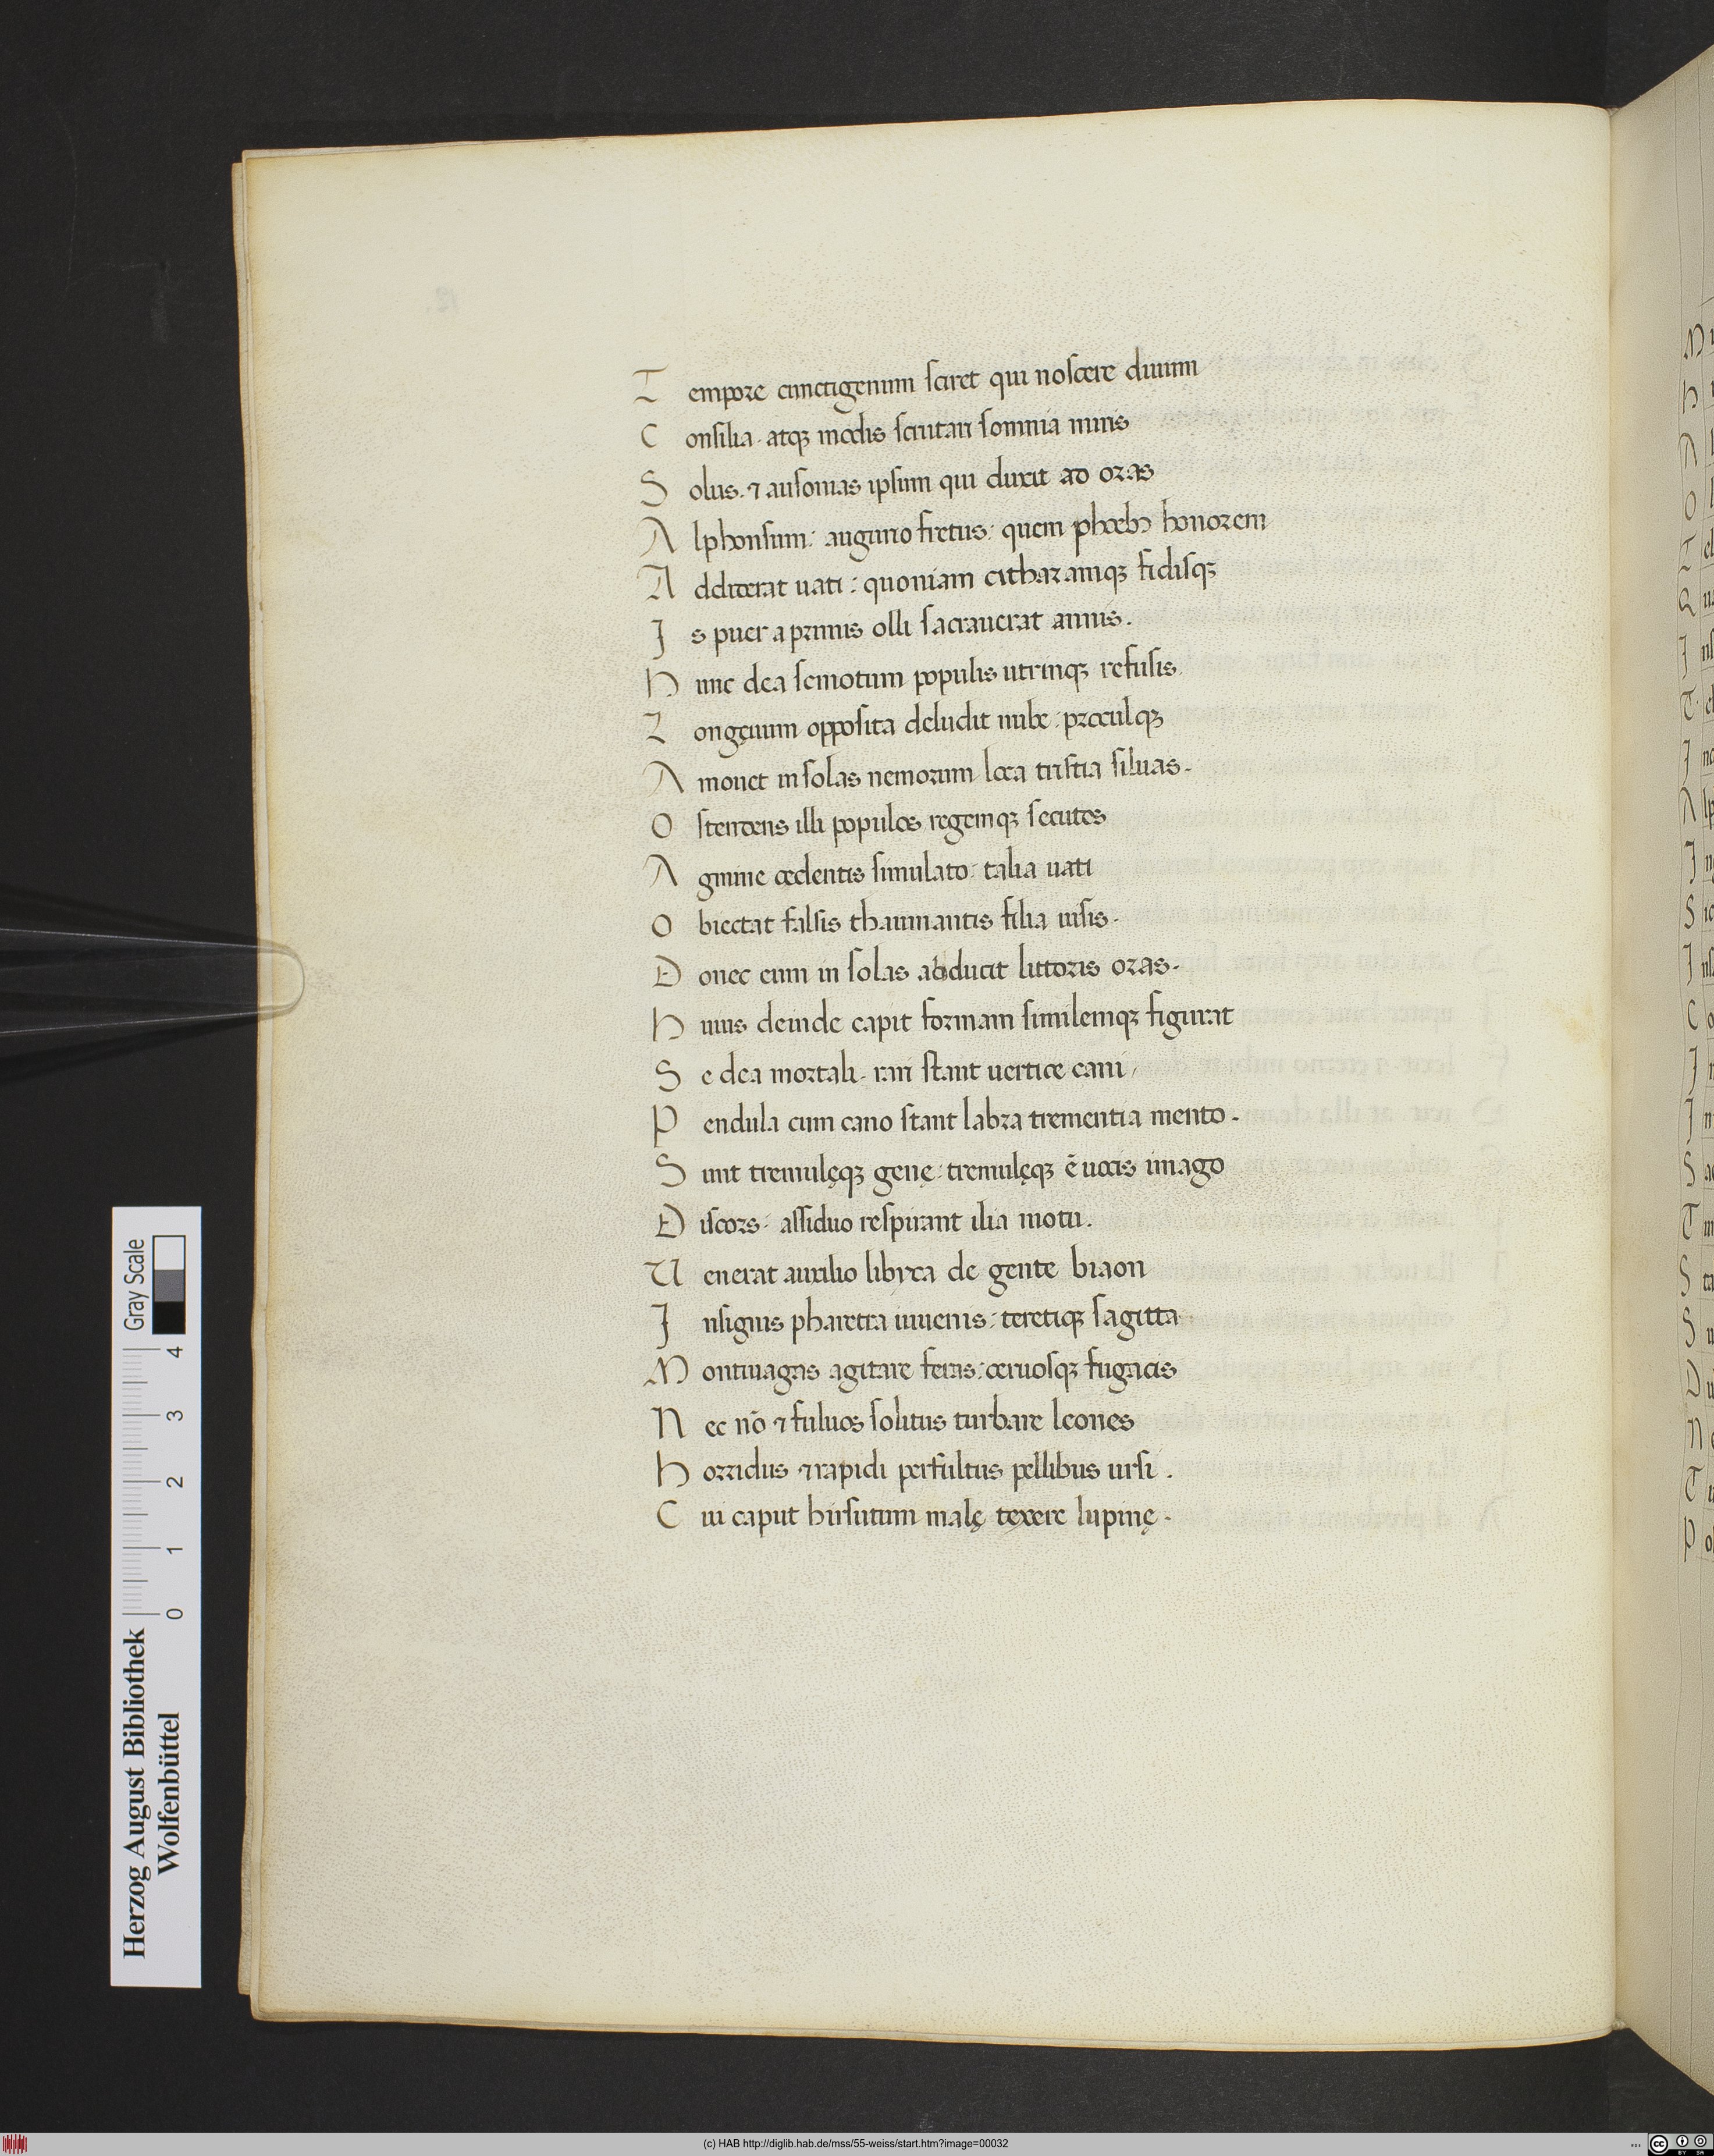 Tempore cunctigenum sciret qui noscere diuum
Consilia. atqꝫ modis scrutari somnia miris
Solus. ⁊ ausonias ipsum qui duxit ad oras
Alphonsum: augurio fretus: quem phoebo honorem
Addiderat uati: quoniam citharamqꝫ fidisqꝫ
Is puer a primis olli sacrauerat annis.
Hunc dea semotum populis utrinqꝫ refusis
Longęuum opposita deludit nube: proculqꝫ
Amouet in solas nemorum loca tristia siluas.
Ostendens illi populos regemqꝫ secutos
Agmine cedentis simulato: talia uati
Obiectat falsis thaumantis filia uisis.
Donec eum in solas abducit littoris oras.
Huius deinde capit formam similemqꝫ figurat
Se dea mortali. rari stant uertice cani,
Pendula cum cano stant labra trementia mento.
Sunt tremulęqꝫ genę: tremulęqꝫ ē uocis imago
Discors: assiduo respirant ilia motu.
Uenerat auxilio libyca de gente biaon
Insignis pharetra iuuenis: teretiqꝫ sagitta
Montiuagas agitare feras: ceruosqꝫ fugacis
Nec nō ⁊ fuluos solitus turbare leones
Horridus ⁊ rapidi perfultus pellibus ursi.
Cui caput hirsutum malę texere lupinę.
Herzog August Bibliothek
Wolfenbüttel
Gray Scale
0 1 2 3 4
(c) HAB http://diglib.hab.de/mss/55-weiss/start.htm?image=00032